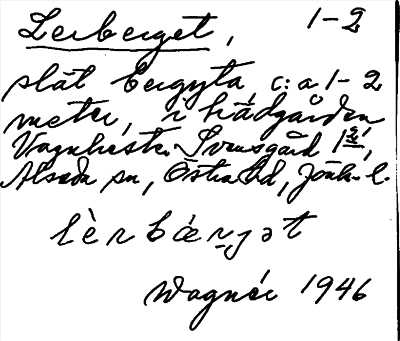 Lerberget, 1-2
slät bergyta, c:a 1-2
meter, i trädgården
Vagnhester. Svensgård 1²¹,
Alseda sn, Östra hd, Jönk. l.
lèrbærjət
Wagnér 1946